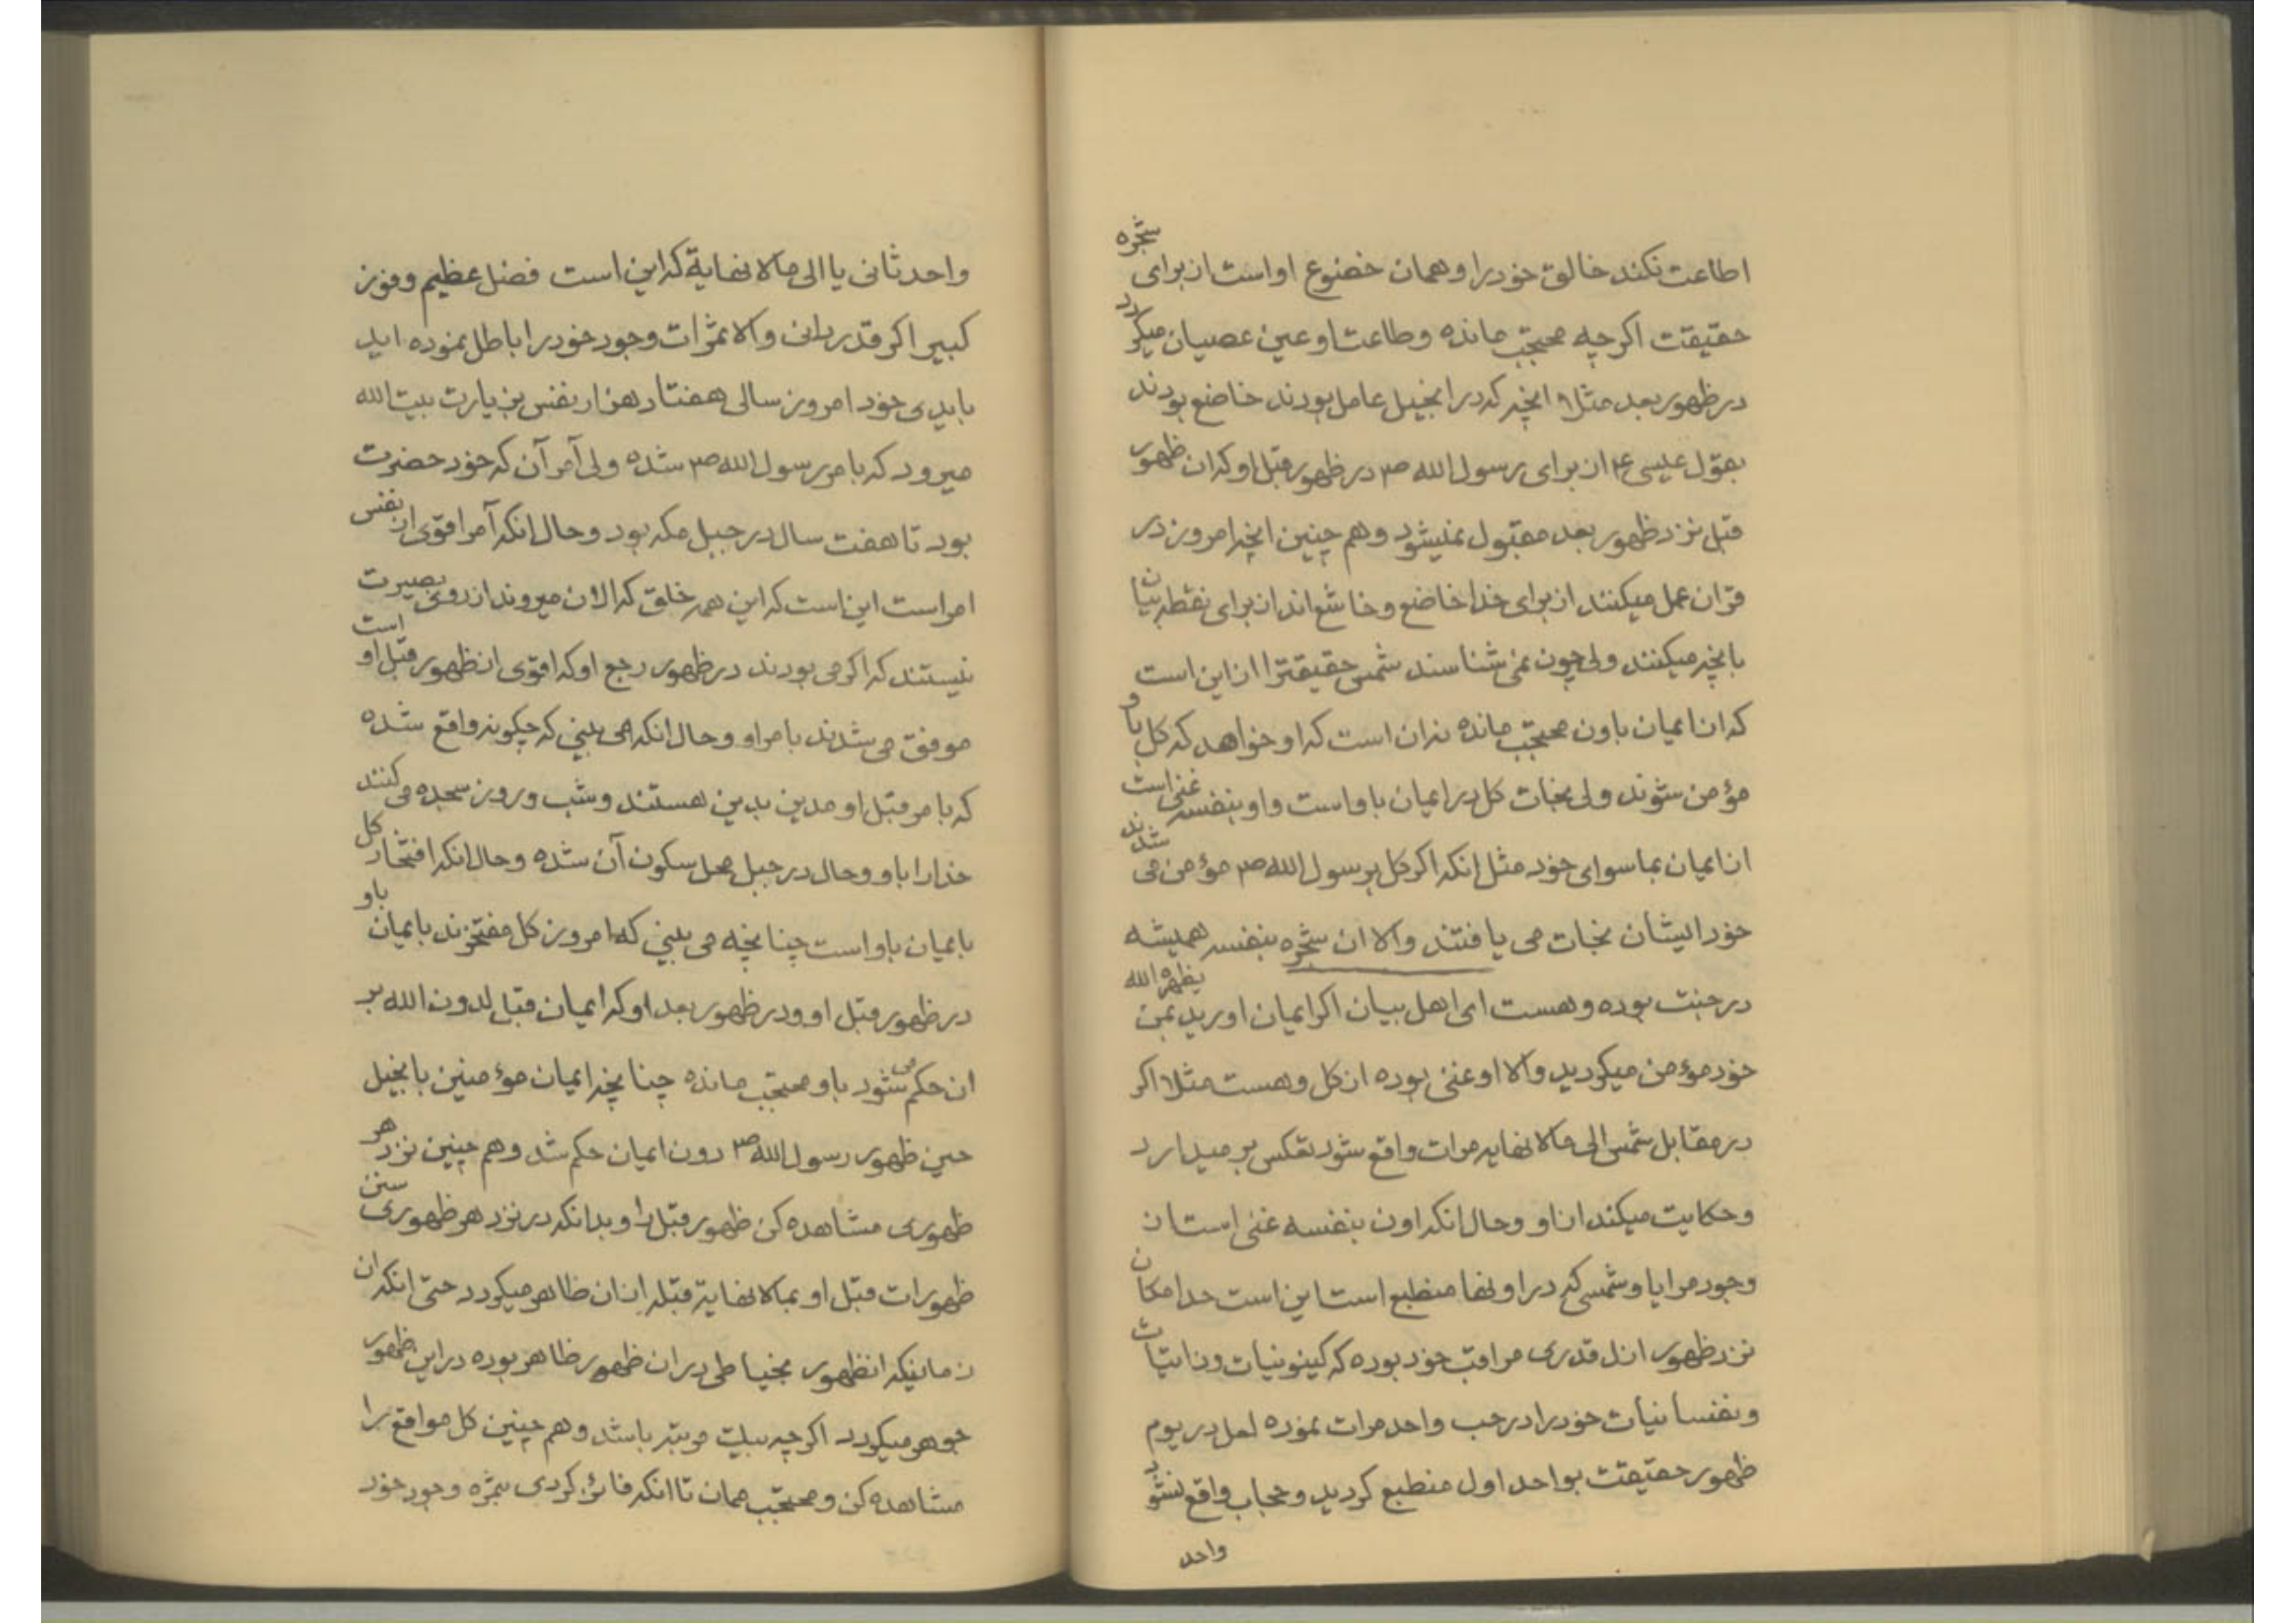 اطاعت نکند خالق خود را و همان خضوع او است از برای شجره
حقیقت اکرچه محتجب مانده و طاعت او عین عصیان میکردد
در ظهور بعد مثلا انچه که در انجیل عامل بودند خاضع بودند
بقول عیسی ع از برای رسول الله ص در ظهور قبل او که ان ظهور
قبل نزد ظهور بعد مقبول نمیشود و هم چنین انچه امروز در
قران عمل میکنند از برای خدا خاضع و خاشع اند از برای نقطه بیان
بانچه میکنند ولی چون نمی شناسند شمس حقیقترا از این است
که از ایمان باون محتجب مانده نه ان است که او خواهد که کل باو
مؤمن شوند ولی نجات کل در ایمان باو است و او بنفسه غنی است
از ایمان بماسوای خود مثل انکه اکر کل برسول الله ص مؤمن می شدند
خود ایشان نجات می یافتند والا ان شجره بنفسه همیشه
در جنت بوده و هست ای اهل بیان اکر ایمان اورید بمن یظهره الله
خود مؤمن میکردید والا او غنی بوده از کل و هست مثلا اکر
در مقابل شمس الی مالا نهایه مرات واقع شود تعکس بر میدارد
و حکایت میکند از او و حال انکه اون بنفسه غنی است از
وجود مرایا و شمسی که در اونها منطبع است این است حد امکان
نزد ظهور ازل قدری مراقب خود بوده که کینونیات و ذاتیات
و نفسانیات خود را در حب واحد مرات نموده لعل در یوم
ظهور حقیقت بواحد اول منطبع کردید و حجاب واقع نشود
واحد
واحد ثانی یا الی مالا نهایة که این است فضل عظیم و فوز
کبیر اکر قدر دانی والا ثمرات وجود خود را باطل نموده اید
بایدی خود امروز سالی هفتاد هزار نفس بزیارت بیت الله
میرود که بامر رسول الله ص شده ولی آمر آن که خود حضرت
بود تا هفت سال در جبل مکه بود و حال انکه آمر اقوی از نفس
امر است این است که این همه خلق که الان میروند از روی بصیرت
نیستند که اکر می بودند در ظهور رجع او که اقوی از ظهور قبل او است
موفق می شدند بامر او و حال انکه می بینی که چکونه واقع شده
که بامر قبل او مدین بدین هستند و شب و روز سجده می کنند
خدا را باو و حال در جبل محل سکون آن شده و حال انکه افتخار کل
بایمان باو است چنانچه می بینی که امروز کل مفتخرند بایمان باو
در ظهور قبل او و در ظهور بعد او که ایمان قبل لدون الله بر
ان حکم می شود باو محتجب مانده چنانچه ایمان مؤمنین بانجیل
حین ظهور رسول الله ص دون ایمان حکم شد و هم چنین نزد هر
ظهوری مشاهده کن ظهور قبل را و بدانکه در نزد هر ظهوری سنن
ظهورات قبل او بمالا نهایة قبله از ان ظاهر میکردد حتی انکه ان
زمانیکه انظهور بخیاطی در ان ظهور ظاهر بوده در این ظهور
جوهر میکردد اکرچه ببیت مرتبه باشد و هم چنین کل مواقع را
مشاهده کن و محتجب ممان تا انکه فائز کردی بثمره وجود خود